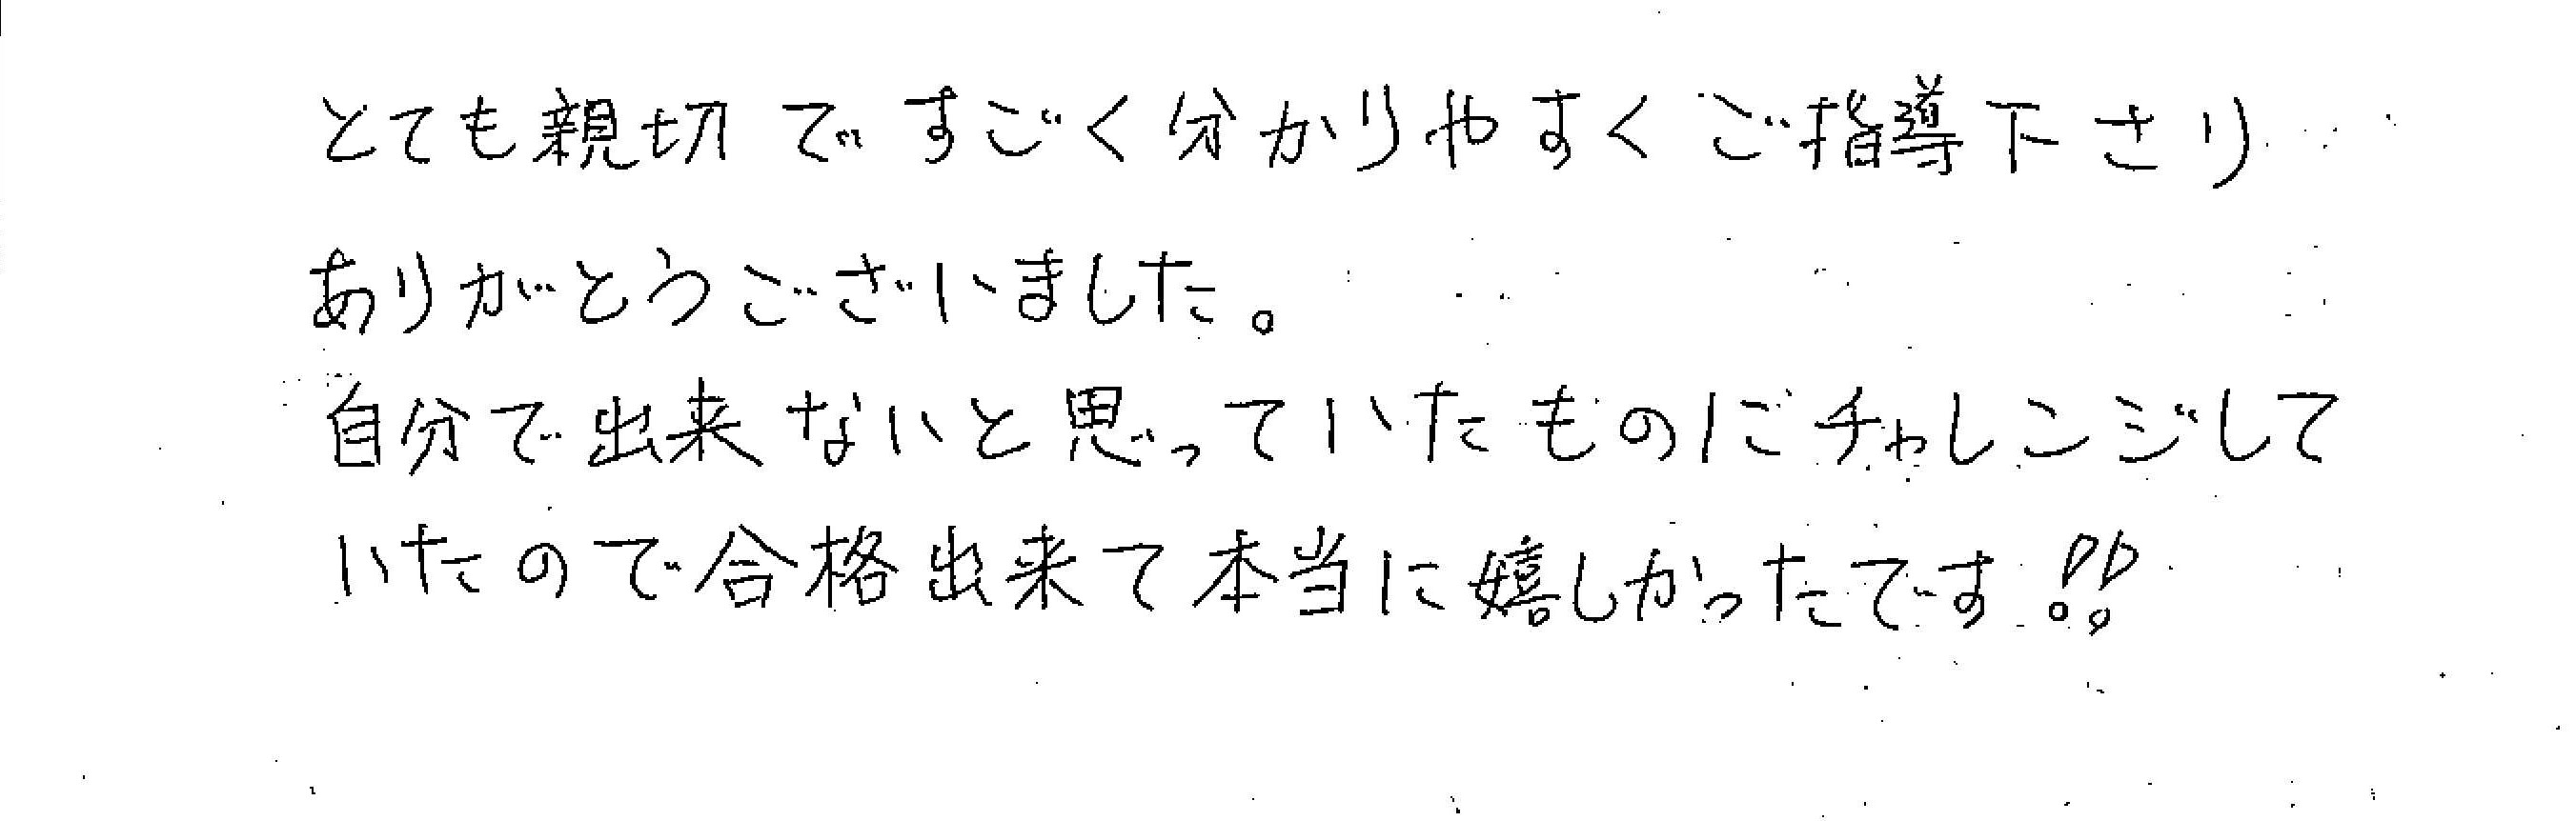 とても親切ですごく分かりやすくご指導下さり
ありがとうございました。
自分で出来ないと思っていたものにチャレンジして
いたので合格出来て本当に嬉しかったです!!